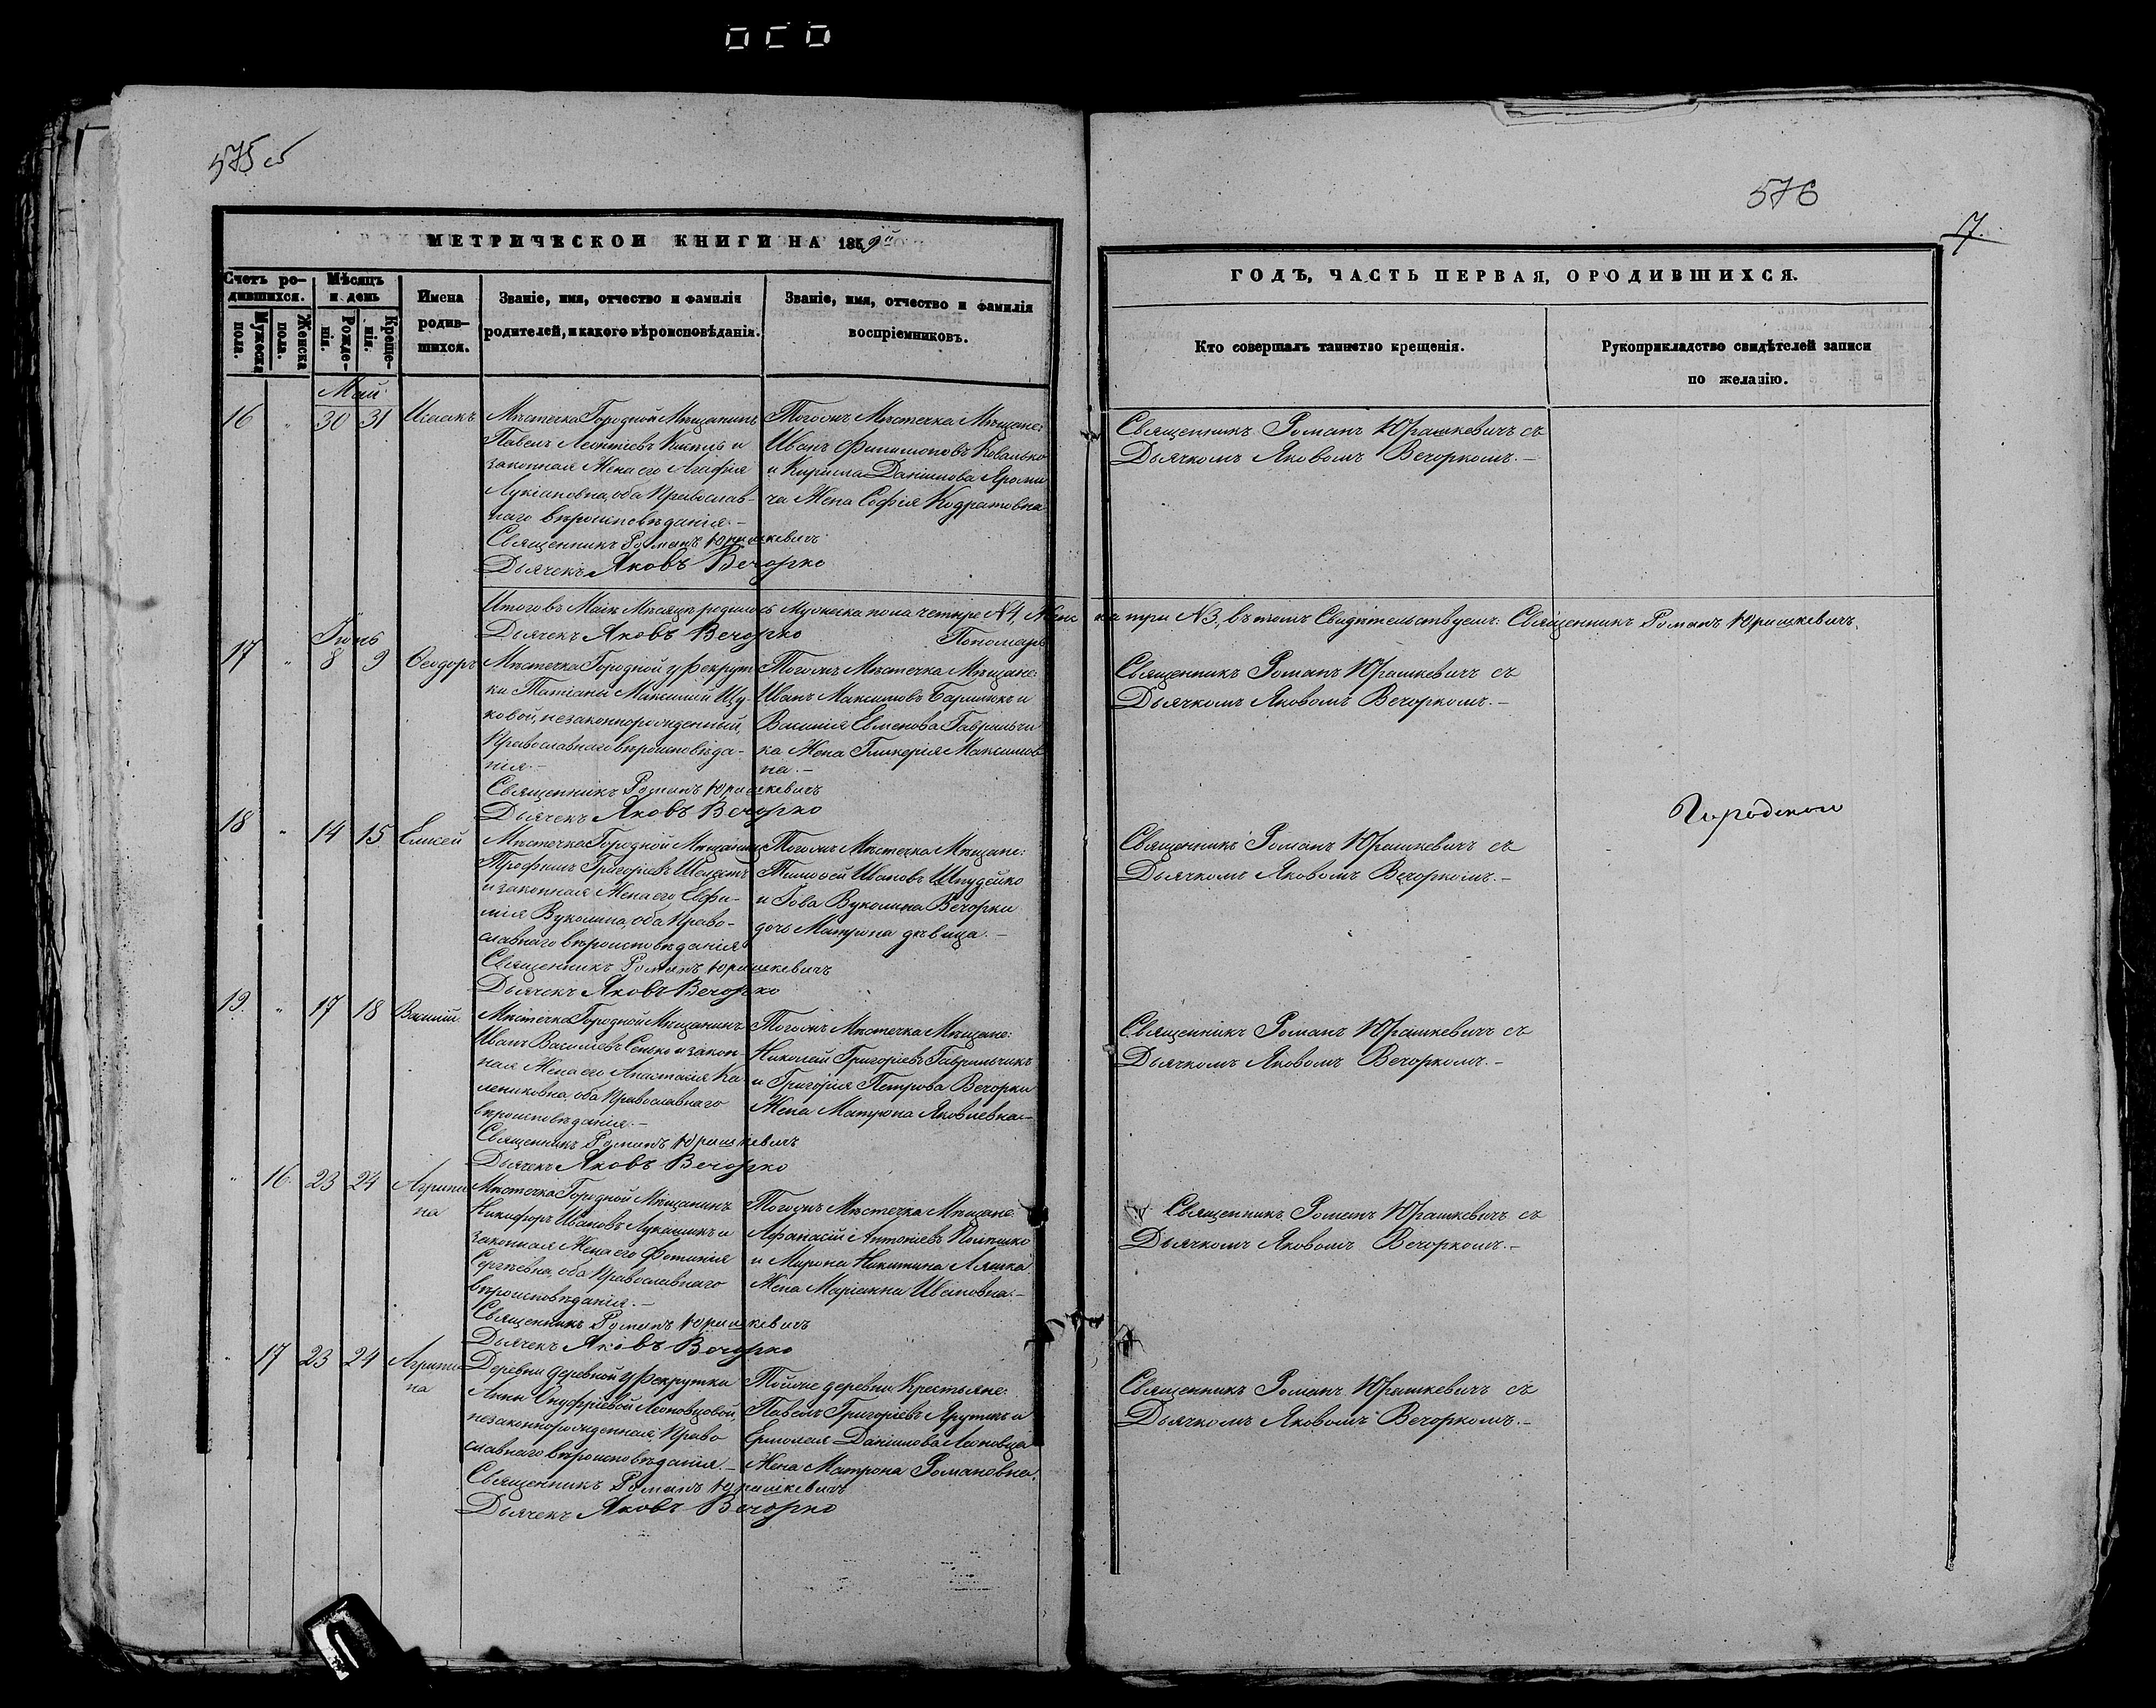 575 об
576
17.
МЕТРИЧЕСКОЙ КНИГИ НА 1859й
ГОДЪ, ЧАСТЬ ПЕРВАЯ, О РОДИВШИХСЯ.
Счетъ ро-
дившихся.
Мужеска
пола.
Женска
пола.
Мѣсяцъ
и день
Рожде-
нія.
Креще-
нія.
Имена
родив-
шихся.
Званіе, имя, отчество и фамилія
родителей, и какого вѣроисповѣданія.
Званіе, имя, отчество и фамилія
воспріемниковъ.
Кто совершалъ таинство крещенія.
Рукоприкладство свидѣтелей записи
по желанію.
Май
16 " 30 31 Исаакъ
Мѣстечка Городной Мѣщанинъ
Павелъ Леонтіевъ и
законная Жена его Агафія
Лукіановна, оба Православ-
наго вѣроисповѣданія.-
Священникъ Романъ Юрашкевичъ
Дьячекъ Яковъ Вечорко
Тогожъ Мѣстечка Мѣщане:
Иванъ Филимоновъ Ковалько
и Кирилла Даніилова Яроми
ча Жена Софія Кодратовна
Священникъ Романъ Юрашкевичъ съ
Дьячкомъ Яковомъ Вечоркомъ.-
Итого въ Маѣ Мѣсяцѣ родилось Мужеска пола четыре №4, Женска три №3, въ томъ Свидѣтельствуемъ: Священникъ Романъ Юрашкевичъ.
Дьячекъ Яковъ Вечорко Пономарь
Іюнь
17 " 8 9 Ѳеодоръ
Мѣстечка Городной у рекрут
ки Татіаны Максимой Цу
ковой, незаконнорожденный,
Православнаго вѣроисповѣда-
нія.-
Священникъ Романъ Юрашкевичъ
Дьячекъ Яковъ Вечорко
Тогожъ Мѣстечка Мѣщане:
Иванъ Максимовъ и
Василія Евменова Гаврильчи
ка Жена Гликерія Максимов
на.-
Священникъ Романъ Юрашкевичъ съ
Дьячкомъ Яковомъ Вечоркомъ.-
18 " 14 15 Елисей
Мѣстечка Городной Мѣщанинъ
Трофимъ Григоріевъ Шелестъ
и законная Жена его Евфи-
мія Вуколина, оба Право-
славнаго вѣроисповѣданія
Священникъ Романъ Юрашкевичъ
Дьячекъ Яковъ Вечорко
Тогожъ Мѣстечка Мѣщане:
Тимоѳей Ивановъ Шпудейко
и Іова Вуколина Вечорки
дочь Матрона дѣвица.-
Священникъ Романъ Юрашкевичъ съ
Дьячкомъ Яковомъ Вечоркомъ.-
19. " 17 18 Василій
Мѣстечка Городной Мѣщанинъ
Иванъ Василіевъ Сенько и закон
ная Жена его Анастасія Ка
лениковна, оба Православнаго
вѣроисповѣданія.-
Священникъ Романъ Юрашкевичъ
Дьячекъ Яковъ Вечорко
Тогожъ Мѣстечка Мѣщане:
Николай Григоріевъ Гаврильчикъ
и Григорія Петрова Вечорки
Жена Матрона Яковлевна.-
Священникъ Романъ Юрашкевичъ съ
Дьячкомъ Яковомъ Вечоркомъ.-
" 16. 23 24 Агрипи
на
Мѣстечка Городной Мѣщанинъ
Никифоръ Ивановъ Лукашикъ и
законная Жена его Фотинія
Сергѣевна, оба Православнаго
вѣроисповѣданія.-
Священникъ Романъ Юрашкевичъ
Дьячекъ Яковъ Вечорко
Тогожъ Мѣстечка Мѣщане:
Афанасій Антоніевъ
и Мирона Никитина Ляшка
Жена Маріанна Ивановна.-
Священникъ Романъ Юрашкевичъ съ
Дьячкомъ Яковомъ Вечоркомъ.-
" 17 23 24 Агрипи
на
Деревни деревной у рекрутки
Анны Онуфріевой Леоновцовой,
незаконнорожденная, Право
славнаго вѣроисповѣданія.-
Священникъ Романъ Юрашкевичъ
Дьячекъ Яковъ Вечорко
Тойже деревни Крестьяне:
Павелъ Григоріевъ Ярутикъ и
Ермолая Даніилова Леоновца
Жена Матрона Романовна.
Священникъ Романъ Юрашкевичъ съ
Дьячкомъ Яковомъ Вечоркомъ.-